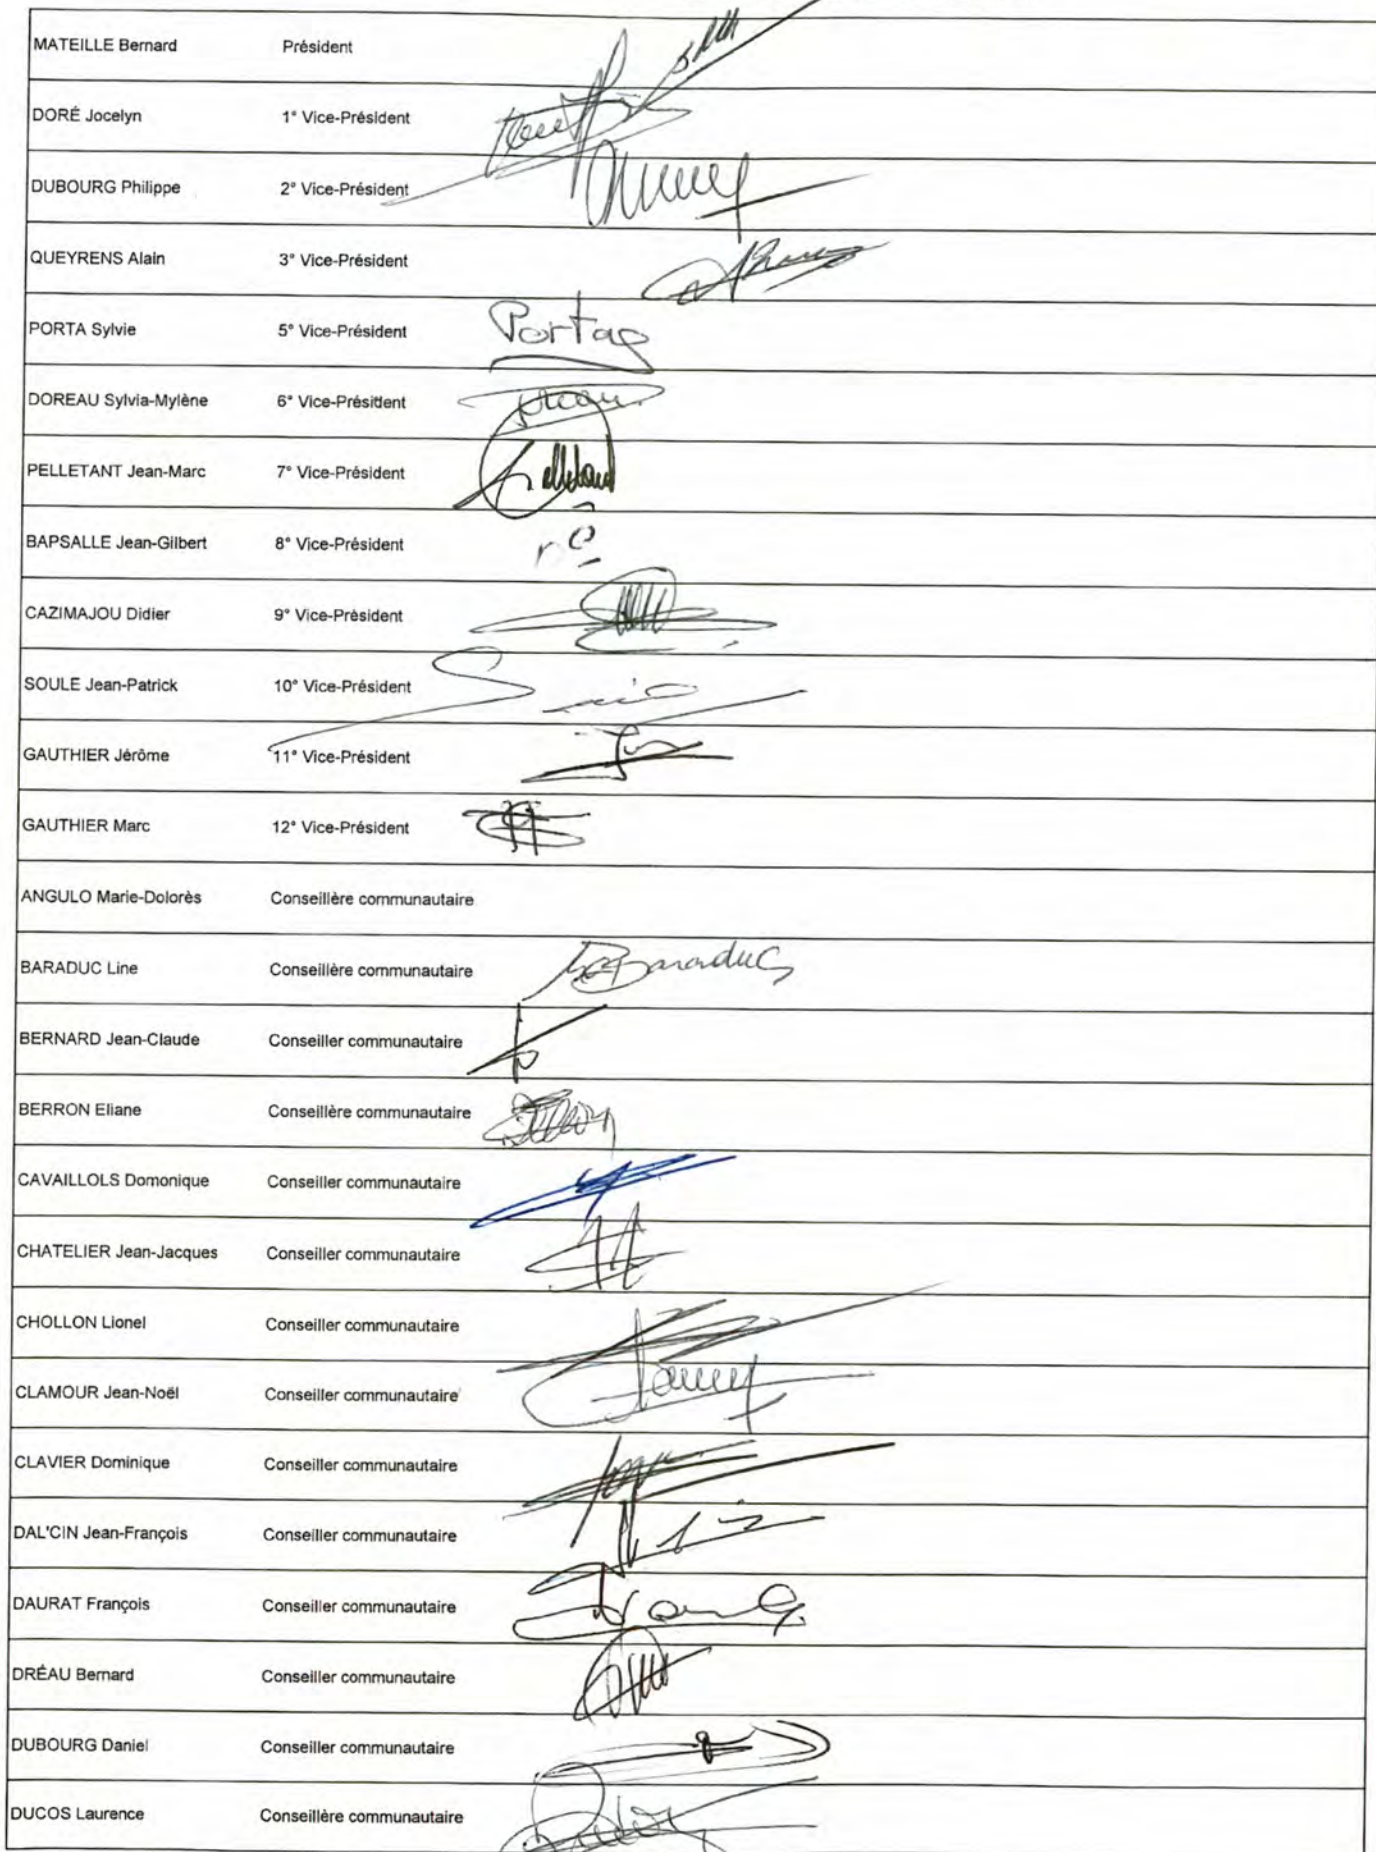 MATEILLE Bernard Président
DORÉ Jocelyn 1° Vice-Président
DUBOURG Philippe 2° Vice-Président
QUEYRENS Alain 3° Vice-Président
PORTA Sylvie 5° Vice-Président Porta
DOREAU Sylvia-Mylène 6° Vice-Président
PELLETANT Jean-Marc 7° Vice-Président
BAPSALLE Jean-Gilbert 8° Vice-Président
CAZIMAJOU Didier 9° Vice-Président
SOULE Jean-Patrick 10° Vice-Président
GAUTHIER Jérôme 11° Vice-Président
GAUTHIER Marc 12° Vice-Président
ANGULO Marie-Dolorès Conseillère communautaire
BARADUC Line Conseillère communautaire Baraduc
BERNARD Jean-Claude Conseiller communautaire
BERRON Eliane Conseillère communautaire
CAVAILLOLS Domonique Conseiller communautaire
CHATELIER Jean-Jacques Conseiller communautaire
CHOLLON Lionel Conseiller communautaire
CLAMOUR Jean-Noël Conseiller communautaire
CLAVIER Dominique Conseiller communautaire
DAL'CIN Jean-François Conseiller communautaire
DAURAT François Conseiller communautaire
DRÉAU Bernard Conseiller communautaire
DUBOURG Daniel Conseiller communautaire
DUCOS Laurence Conseillère communautaire